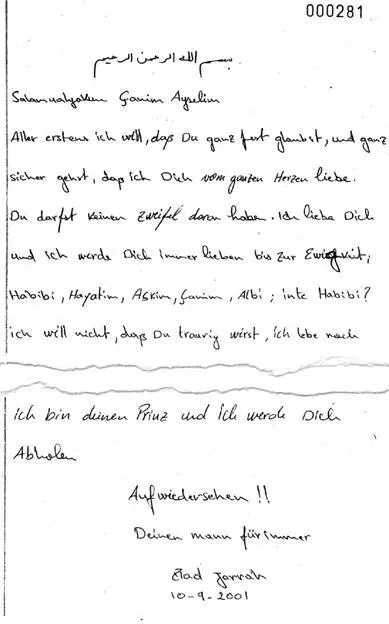 000281
بسم الله الرحمن الرحيم
Salamualyakum Çanim Ayselim
Aller erstens ich will, daß Du ganz fest glaubst, und ganz
sicher gehst, daß ich Dich vom ganzen Herzen liebe.
Du darfst keinen Zweifel daran haben. Ich liebe Dich
und ich werde Dich immer lieben bis zur Ewigkeit;
Habibi, Hayatim, Aşkim, Çanim, Albi; inte Habibi?
ich will nicht, daß Du traurig wirst, ich lebe noch
Ich bin deinen Prinz und ich werde Dich
Abholen
Aufwiedersehen !!
Deinen mann fürimmer
Ziad Jarrah
10-9-2001